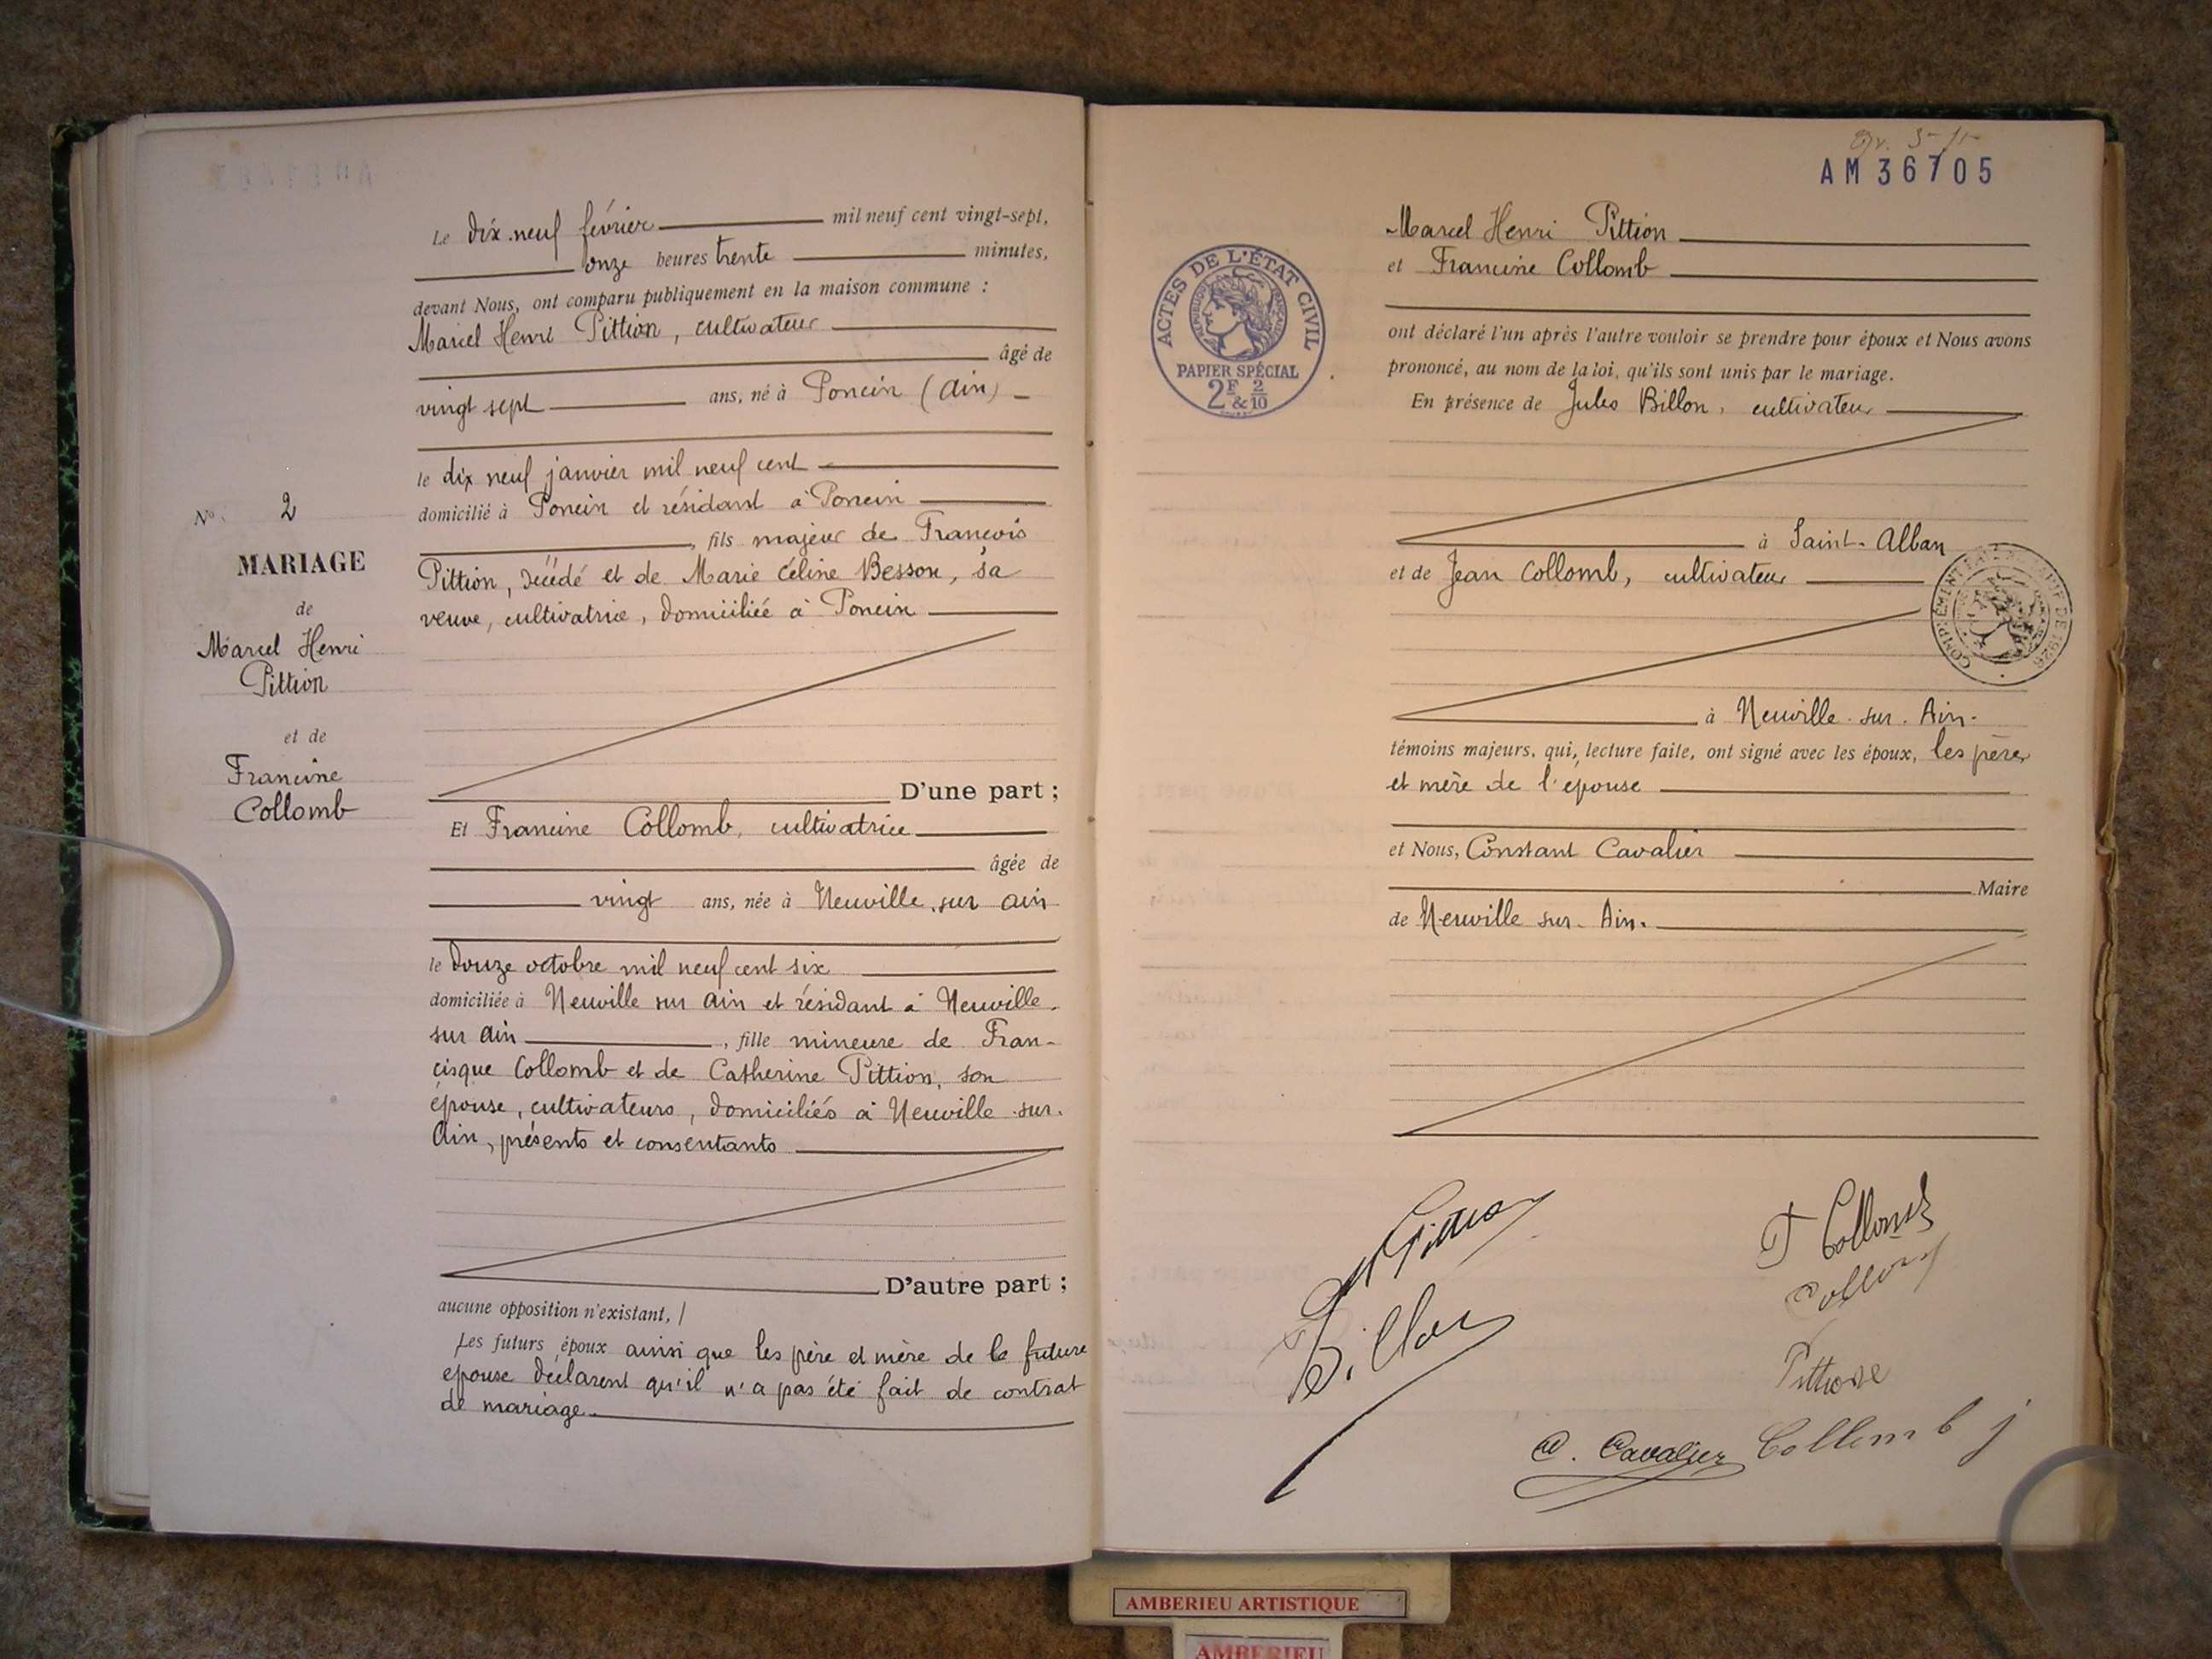 No. 2
MARIAGE
de
Marcel Henri
Pittion
et de
Francine
Collomb
Le dix-neuf février mil neuf cent vingt-sept,
onze heures trente minutes,
devant Nous, ont comparu publiquement en la maison commune :
Marcel Henri Pittion, cultivateur
âgé de
vingt sept ans, né à Poncin (Ain)
le dix neuf janvier mil neuf cent
domicilié à Poncin et résidant à Poncin
, fils majeur de François
Pittion, décédé et de Marie Céline Besson, sa
veuve, cultivatrice, domiciliée à Poncin
D'une part ;
Et Francine Collomb, cultivatrice
âgée de
vingt ans, née à Neuville sur Ain
le douze octobre mil neuf cent six
domiciliée à Neuville sur Ain et résidant à Neuville
sur Ain , fille mineure de Fran-
cisque Collomb et de Catherine Pittion, son
épouse, cultivateurs, domiciliés à Neuville sur
Ain, présents et consentants
D'autre part ;
aucune opposition n'existant,
Les futurs époux ainsi que les père et mère de la future
epouse déclarent qu'il n'a pas été fait de contrat
de mariage.
AM36705
ACTES DE L'ÉTAT CIVIL
RÉPUBLIQUE FRANÇAISE
PAPIER SPÉCIAL
2F & 2/10
Marcel Henri Pittion
et Francine Collomb
ont déclaré l'un après l'autre vouloir se prendre pour époux et Nous avons
prononcé, au nom de la loi, qu'ils sont unis par le mariage.
En présence de Jules Billon, cultivateur
à Saint-Alban
et de Jean Collomb, cultivateur
à Neuville sur Ain
témoins majeurs, qui, lecture faite, ont signé avec les époux, les père
et mère de l'epouse
et Nous, Constant Cavalier
Maire
de Neuville sur Ain.
Pittion
F Collomb
Collomb
Billon
Pittion
C. Cavalier Collomb j
AMBERIEU ARTISTIQUE
AMBERIEU